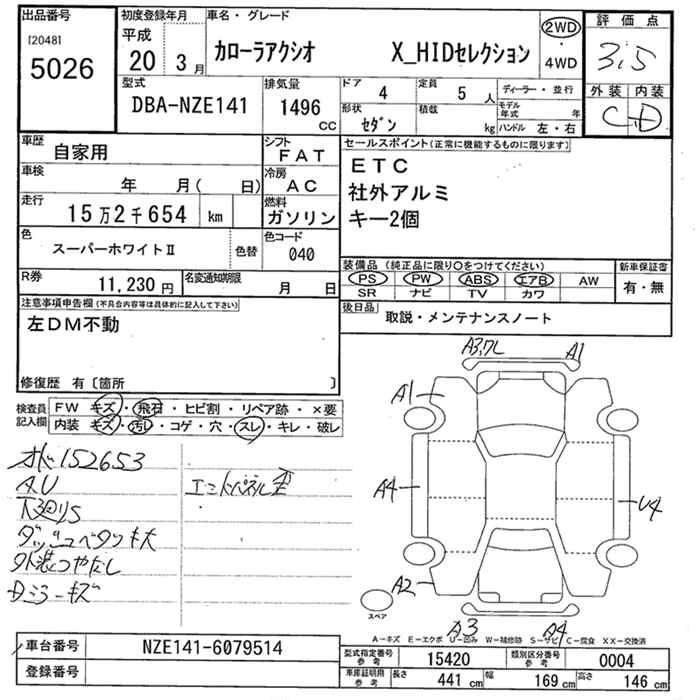 出品番号
[2048]
5026
初度登録年月
平成
20 3月
車名・グレード
カローラアクシオ X_HIDセレクション
2WD
・
4WD
評価点
3.5
外装 内装
C D
型式
DBA-NZE141
排気量
1496
CC
ドア 4
定員 5 人
ディーラー・並行
形状 セダン
積載 kg
モデル年式 年
ハンドル 左・右
車歴
自家用
シフト
FAT
車検
年 月( 日)
冷房
AC
走行
15万2千654 km
燃料
ガソリン
色
スーパーホワイトⅡ
色替
色コード
040
R券
11,230円
名変通知期限
月 日
セールスポイント(正常に機能するものに限ります)
ETC
社外アルミ
キー2個
装備品(純正品に限り○をつけてください)
PS PW ABS エアB AW
SR ナビ TV カワ
新車保証書
有・無
後日品
取説・メンテナンスノート
注意事項申告欄(不具合内容等は具体的に記入して下さい)
左DM不動
修復歴 有〔箇所 〕
検査員
記入欄
FW キズ・飛石・ヒビ割・リペア跡・×要
内装 キズ・汚レ・コゲ・穴・スレ・キレ・破レ
152653
AU
下廻りS
エンドパネル歪
外装つやなし
Dミラーキズ
A3,7L
A1
A1
A4
U4
A2
A3
A4
スペア
A－キズ E－エクボ U－凹み W－補修跡 S－サビ C－腐食 XX－交換済
車台番号 NZE141-6079514
登録番号
型式指定番号
参考
15420
類別区分番号
参考
0004
車庫証明用
参考
長さ 441 cm
幅 169 cm
高さ 146 cm